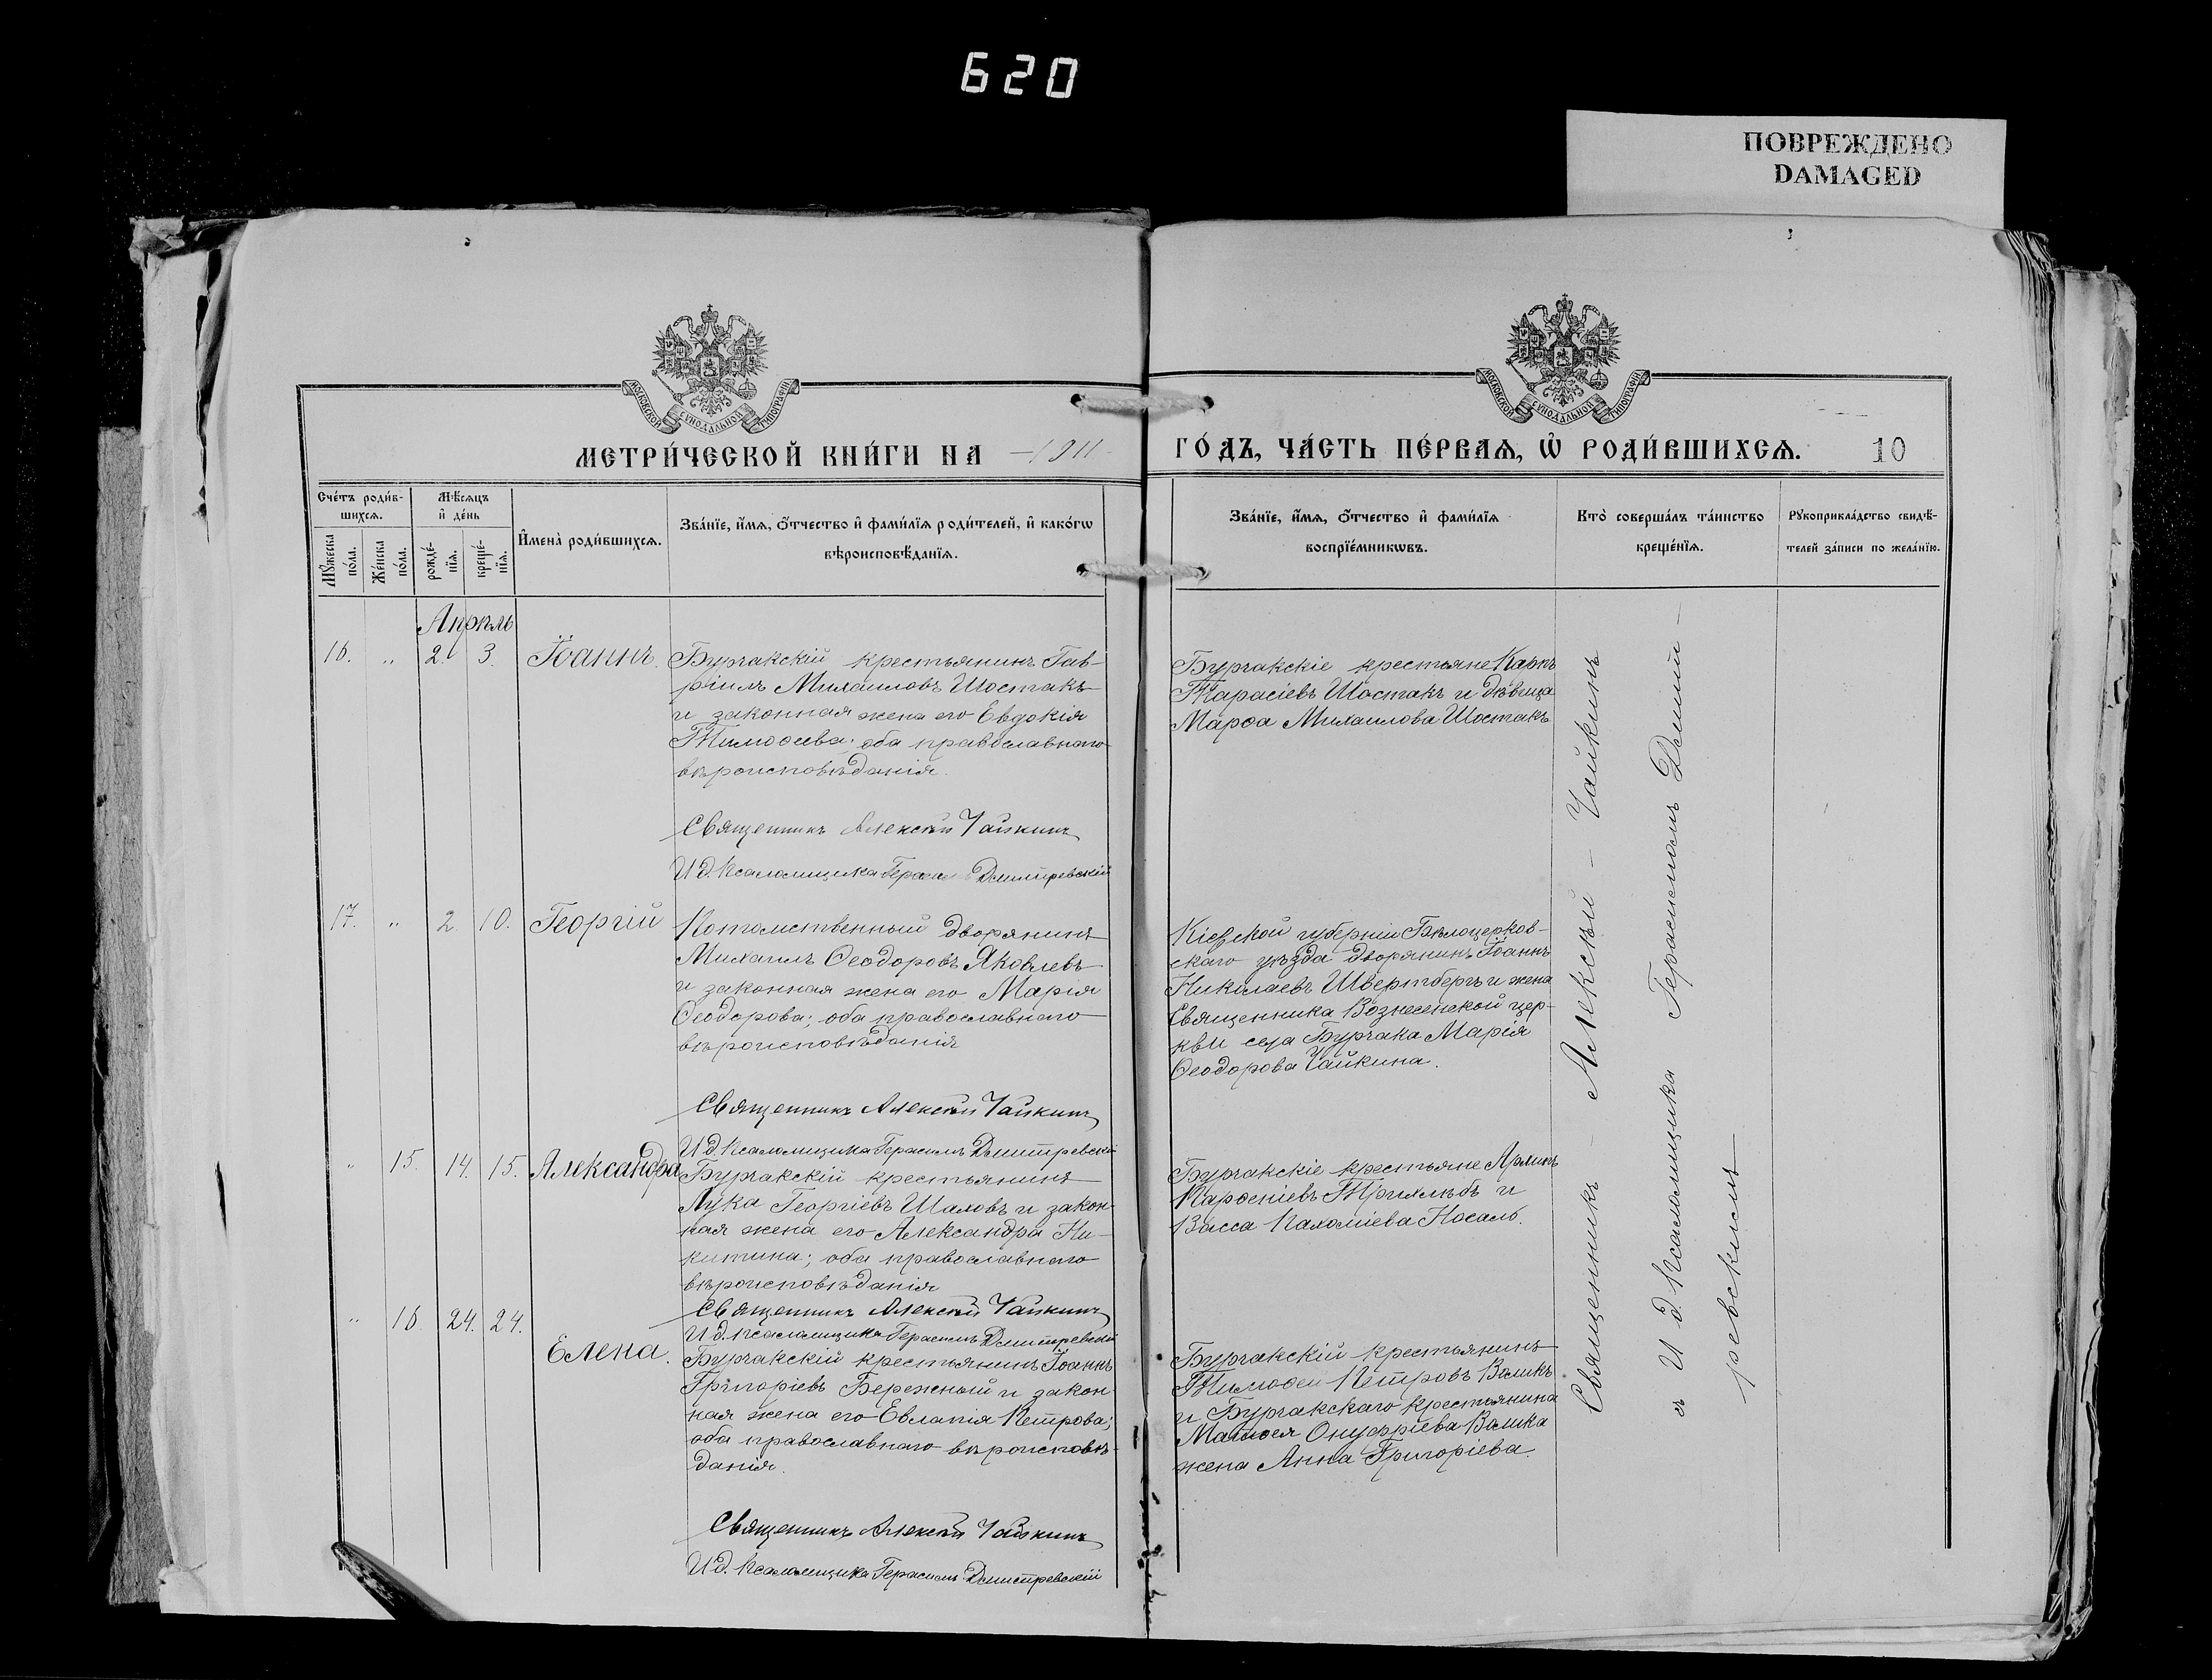 620
ПОВРЕЖДЕНО
DAMAGED
МОСКОВСКОЙ СѴНОДАЛЬНОЙ ТИПОГРАФІИ
МОСКОВСКОЙ СѴНОДАЛЬНОЙ ТИПОГРАФІИ
МЕТРИ́ЧЕСКОЙ КНИ́ГИ НА 1911
ГО́ДЪ, ЧА́СТЬ ПЕ́РВАѦ, Ѡ҆ РОДИ́ВШИХСѦ.
10
Сче́тъ роди́в-
шихсѧ.
Мꙋ́жеска
по́ла.
Же́нска
по́ла.
Мѣ́сѧцъ
и҆ де́нь
рожде́-
нїѧ.
креще́-
нїѧ.
И҆мена̀ роди́вшихсѧ.
Зва́нїе, и҆́мѧ, ѻ҆́тчество и҆ фами́лїѧ роди́телей, и҆ како́гѡ
вѣроисповѣ́данїѧ.
Зва́нїе, и҆́мѧ, ѻ҆́тчество и҆ фами́лїѧ
воспрїе́мникѡвъ.
Кто̀ соверша́лъ та́инство
креще́нїѧ.
Рꙋкоприкла́дство свидѣ́-
телей за́писи по жела́нїю.
Апрѣль
16. „ 2. 3. Іоаннъ.
Бурчакскій крестьянинъ Гав-
ріилъ Михаиловъ Шостакъ
и законная жена его Евдокія
Тимоѳеева; оба православнаго
вѣроисповѣданія.
Священникъ Алексѣй Чайкинъ
И д. Псаломщика Герасимъ Дмитревскій
Бурчакскіе крестьяне Карпъ
Тарасіевъ Шостакъ и дѣвица
Марѳа Михаилова Шостакъ
17. „ 2. 10. Георгій
Потомственный дворянинъ
Михаилъ Ѳеодоровъ Яковлевъ
и законная жена его Марія
Ѳеодорова; оба православнаго
вѣроисповѣданія
Священникъ Алексѣй Чайкинъ
И д. Псаломщика Герасимъ Дмитревскій
Кіевской губерніи Бѣлоцерков-
скаго уѣзда дворянинъ Іоаннъ
Николаевъ Швертбергъ и жена
Священника Вознесенской цер-
кви села Бурчака Марія
Ѳеодорова Чайкина.
„ 15. 14. 15. Александра
Бурчакскій крестьянинъ
Лука Георгіевъ Шаловъ и закон-
ная жена его Александра Ни-
китина; оба православнаго
вѣроисповѣданія
Священникъ Алексѣй Чайкинъ
И д. Псаломщика Герасимъ Дмитревскій
Бурчакскіе крестьяне
Парѳеніевъ Трихлѣбъ и
Васса Пахоміева Носаль.
„ 16 24. 24. Елена.
Бурчакскій крестьянинъ Іоаннъ
Григоріевъ Бережный и закон-
ная жена его Евлапія Петрова;
оба православнаго вѣроисповѣ-
данія.
Священникъ Алексѣй Чайкинъ
И д. Псаломщика Герасимъ Дмитревскій
Бурчакскій крестьянинъ
Тимоѳей Петровъ Валикъ
и Бурчакскаго крестьянина
Матѳея Онуфріева Валика
жена Анна Григоріева.
Священникъ - Алексѣй - Чайкинъ
съ И д. Псаломщика Герасимомъ Дмит-
ревскимъ